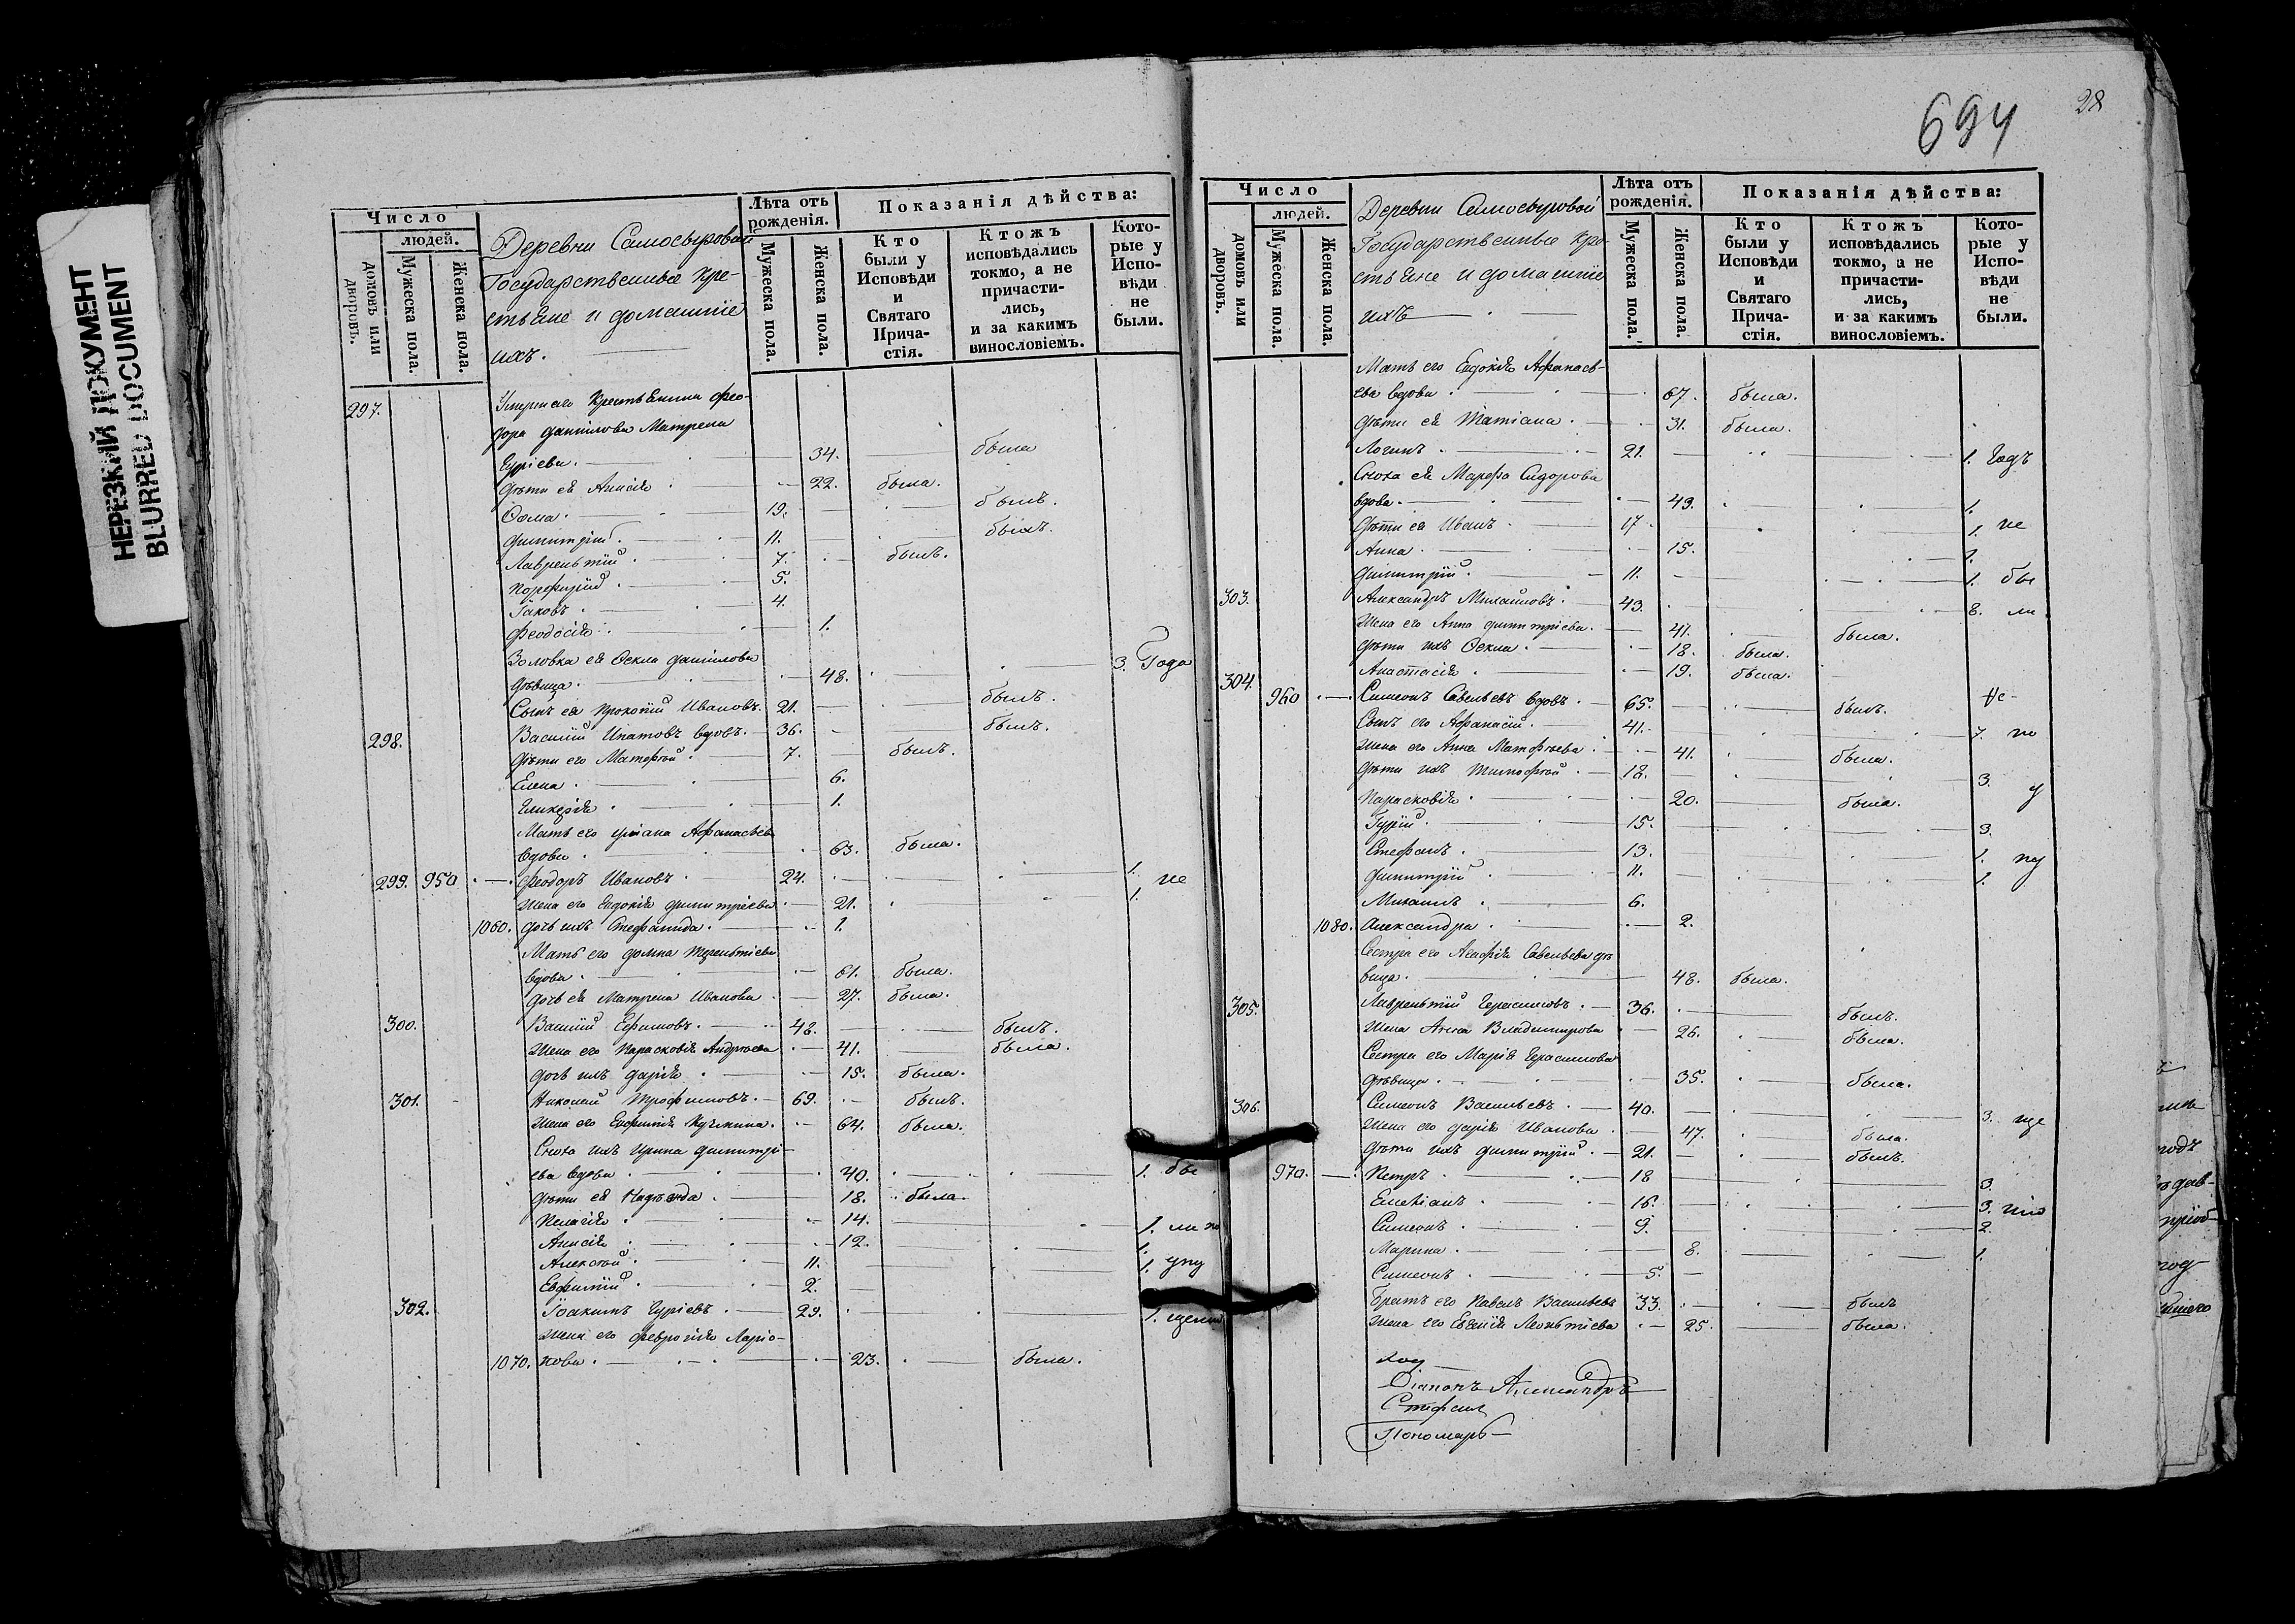 НЕРЕЗКИЙ ДОКУМЕНТ
BLURRED DOCUMENT
Число
людей.
домовъ или дворовъ.
Мужеска пола.
Женска пола.
Деревни Самосыровой
Государственные кре-
стьяне и домашніе
ихъ.
Лѣта отъ рожденія.
Мужеска пола.
Женска пола.
Показанія дѣйства:
Кто были у Исповѣди и Святаго Прича-стія.
Ктожъ исповѣдались токмо, а не причасти-лись, и за какимъ винословіемъ.
Кото-рые у Испо-вѣди не были.
297. Умершаго крестьянина Фео-
дора Данилова Матрена
Гуріева. 34. была
Дѣти ея Анисія 22. была.
Ѳома. 19. былъ.
Димитрій. 11. былъ.
Лаврентій. 7. былъ.
Порфирій. 5.
Іаковъ. 4.
Феодосія. 1.
Золовка ея Ѳекла Данилова
дѣвица. 48. 3. Года
Сынъ ея Прокопій Ивановъ. 21. былъ.
298. Василій Ипатовъ вдовъ. 36. былъ.
Дѣти его Матфей. 7. былъ.
Елена. 6.
Гликерія. 1.
Мать его Афанасьева
вдова. 63. была.
299. 950. Феодоръ Ивановъ. 24. 1. не
Жена его Евдокія Димитріева. 21. 1.
1060. Дочь ихъ Стефанида. 1.
Мать его Домна Терентіева
вдова. 61. была.
Дочь ея Матрена Иванова. 27. была.
300. Василій Ефимовъ. 48. былъ.
Жена его Парасковія Андреева 41. была.
Дочь ихъ Дарія. 15. была.
301. Николай Трофимовъ. 69. былъ.
Жена его Евфимія Кузмина. 64. была.
Сноха ихъ Ирина Димитрі-
ева вдова. 40. 1. бы
Дѣти ея Надежда. 18. была.
Пелагія. 14. 1. ли по
Анисія. 12. 1.
Алексѣй. 11. 1. упу
Евфимій. 2.
302. Іоакимъ Гуріевъ. 29. 1. щенію
Жена его Февронія Ларіо-
1070. нова. 23. была.
694
28
Число
людей.
домовъ или дворовъ.
Мужеска пола.
Женска пола.
Деревни Самосыровой
Государственные кре-
стьяне и домашніе
ихъ
Лѣта отъ рожденія.
Мужеска пола.
Женска пола.
Показанія дѣйства:
Кто были у Исповѣди и Святаго Прича-стія.
Ктожъ исповѣдались токмо, а не причасти-лись, и за какимъ винословіемъ.
Кото-рые у Испо-вѣди не были.
Мать его Евдокія Афанась-
ева вдова. 67. была.
Дѣти ея Татіана. 31. была.
Логинъ. 21. 1. Годъ
Сноха ея Марфа Сидорова
вдова. 49. 1.
Дѣти ея Иванъ. 17. 1. не
Анна. 15. 1.
Димитрій. 11. 1. бы
303. Александръ Михайловъ. 43. 8. ли
Жена его Анна Димитріева. 41. была.
Дѣти ихъ Ѳекла. 18. была.
Анастасія. 19. была.
304. 960. Симеонъ Савельевъ вдовъ. 65. былъ. Не-
Сынъ его Афанасій. 41. 7. по
Жена его Анна Матфѣева. 41. была.
Дѣти ихъ Тимофей. 18. 3.
Парасковія. 20. была. у
Гурій. 15. 3.
Стефанъ. 13. 1. пу
Димитрій. 11. 1.
Михаилъ. 6.
1080. Александра. 2.
Сестра его Агафія Савельева дѣ
вица. 48. была.
305. Лаврентій Герасимовъ. 36. былъ.
Жена Анна Владимирова 26. была.
Сестра его Марія Герасимова
дѣвица. 35. была.
306. Симеонъ Васильевъ. 40. 3. ще
Жена его Дарія Иванова. 47. была.
Дѣти ихъ Димитрій. 21. былъ.
970. Петръ. 18 3.
Емеліанъ. 16. 3. нію
Симеонъ. 9. 2.
Марина. 8. 1.
Симеонъ. 5.
Братъ его Павелъ Васильевъ 33. былъ
Жена его Евгенія Леонтіева 25. была.
Діаконъ Александръ
Пономарь